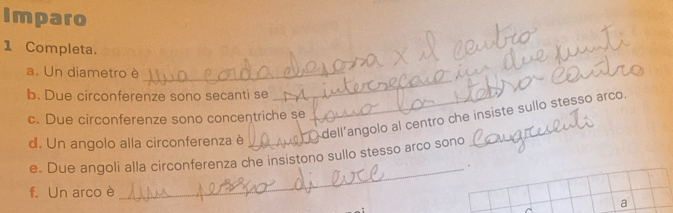 Imparo
1 Completa.
a. Un diametro è una corda che passa x il centro
b. Due circonferenze sono secanti se si intersecano in due punti
c. Due circonferenze sono concentriche se hanno lo stesso centro
d. Un angolo alla circonferenza è la metà dell'angolo al centro che insiste sullo stesso arco.
e. Due angoli alla circonferenza che insistono sullo stesso arco sono congruenti.
f. Un arco è un pezzo di
a